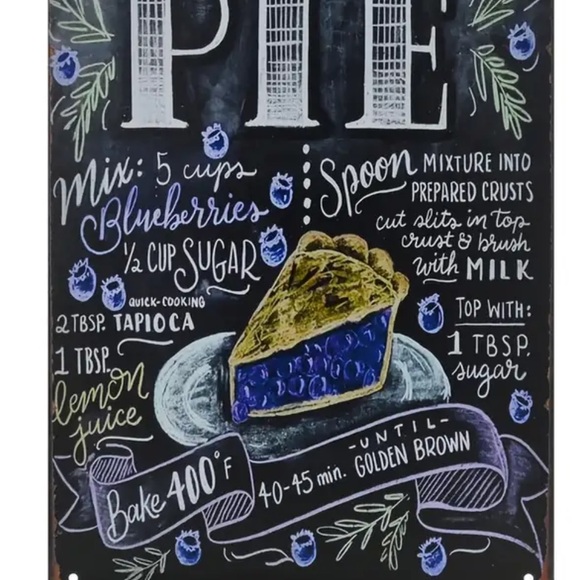 PIE
Mix: 5 cups
Blueberries
½ CUP SUGAR
QUICK-COOKING
2 TBSP. TAPIOCA
1 TBSP.
lemon
juice
Spoon MIXTURE INTO
PREPARED CRUSTS
cut slits in top
crust & brush
with MILK
TOP WITH:
1 TBSP.
sugar
Bake 400°F
40-45 min.
-UNTIL-
GOLDEN BROWN